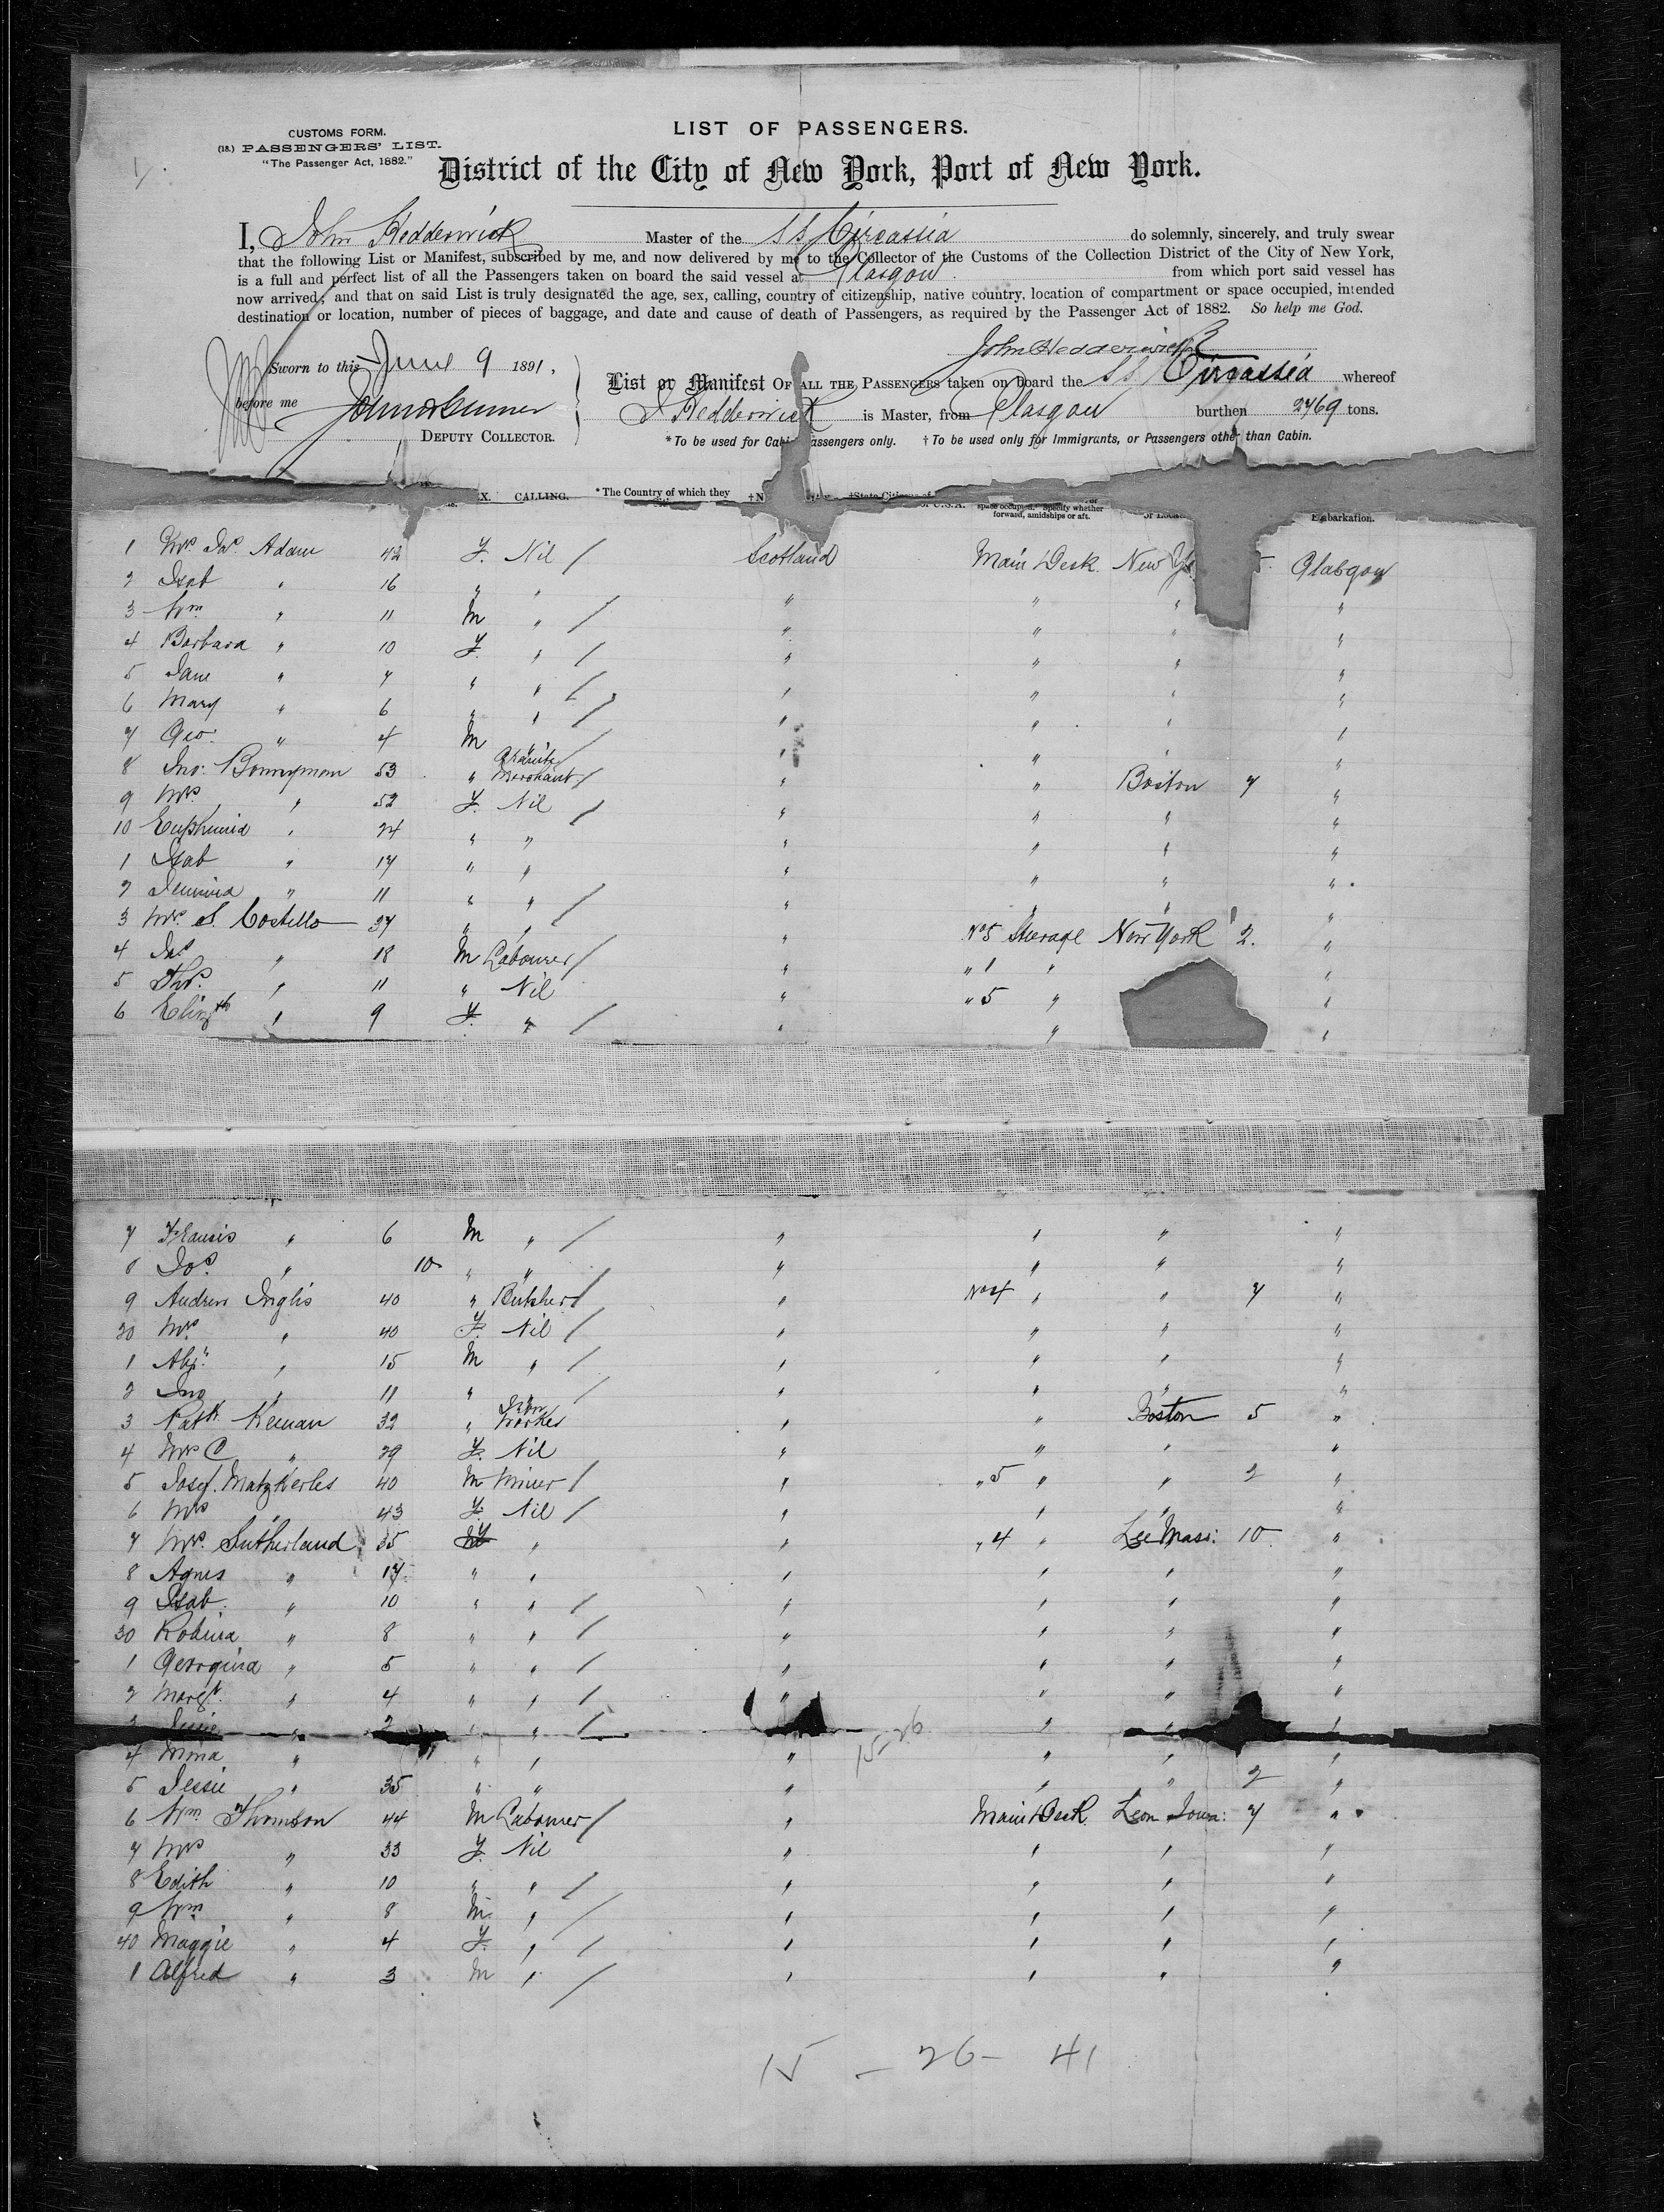 CUSTOMS FORM.
(18.) PASSENGERS' LIST.
"The Passenger Act, 1882."
LIST OF PASSENGERS.
District of the City of New York, Port of New York.
I, John Hedderwick Master of the SS Circassia do solemnly, sincerely, and truly swear
that the following List or Manifest, subscribed by me, and now delivered by me to the Collector of the Customs of the Collection District of the City of New York,
is a full and perfect list of all the Passengers taken on board the said vessel at Glasgow. from which port said vessel has
now arrived; and that on said List is truly designated the age, sex, calling, country of citizenship, native country, location of compartment or space occupied, intended
destination or location, number of pieces of baggage, and date and cause of death of Passengers, as required by the Passenger Act of 1882. So help me God.
John Hedderwick
Sworn to this June 9 1891,
before me
DEPUTY COLLECTOR.
List or Manifest OF ALL THE PASSENGERS taken on board the SS Circassia whereof
J Hedderwick is Master, from Glasgow burthen 2769 tons.
*To be used for Cabin Passengers only. †To be used only for Immigrants, or Passengers other than Cabin.
CALLING. *The Country of which they of U.S.A. space occupied. Specify whether forward, amidships or aft. Embarkation.
1 Mrs Jas. Adam 42 F. Nil / Scotland Main Deck. New Glasgow
2 Isab " 16 " " " " " "
3 Wm " 11 M " / " " " "
4 Barbara " 10 F. " / " " " "
5 Jane " 7 " " / " " " "
6 Mary " 6 " " / " " " "
7 Geo. " 4 M " / " " " "
8 Jno. Bonnyman 53 " Granite Merchant / " " Boston 7 "
9 Mrs " 52 F. Nil / " " " "
10 Euphemia " 24 " " " " " "
1 Isab " 17 " " " " " "
2 Jemima " 11 " " / " " " "
3 Mrs S. Costello 37 " " " No 5 Steerage New York 2. "
4 Jas " 18 M Labourer / " " 1 " "
5 Thos. " 11 " Nil " " 5 " "
6 Elizth " 9 F. " / " " "
7 Francis " 6 M " / " " " "
8 Jos. " 10 " " " " " "
9 Andrew Inglis 40 " Butcher / " No 4 " " 7 "
20 Mrs " 40 F. Nil / " " " "
1 Alexr. " 15 M " / " " " "
2 Jno " 11 " / " " " "
3 Patk. Keenan 32 " Iron Worker " " Boston 5 "
4 Mrs C " 29 F. Nil " " " "
5 Josef. Matzkerles 40 M Miner / " " 5 " " 2 "
6 Mrs " 43 F. Nil / " " " "
7 Mrs. Sutherland 35 F " " " 4 " Lee Mass: 10 "
8 Agnes " 17 " " " " " "
9 Isab. " 10 " " / " " " "
30 Robina " 8 " " / " " " "
1 Georgina " 5 " " / " " " "
2 Margt. " 4 " " / " " " "
3 Jessie " 2 " " / " " "
15-26
4 Mina " " " " " " "
5 Jessie " 35 " " " " " 2 "
6 Wm. Thomson 44 M Labourer / " Main Deck. Leon Iowa: 7 "
7 Mrs " 33 F. Nil " " " "
8 Edith " 10 " " / " " " "
9 Wm " 8 M. " / " " " "
40 Maggie " 4 F. " / " " " "
1 Alfred " 3 M " / " " " "
15 - 26 - 41